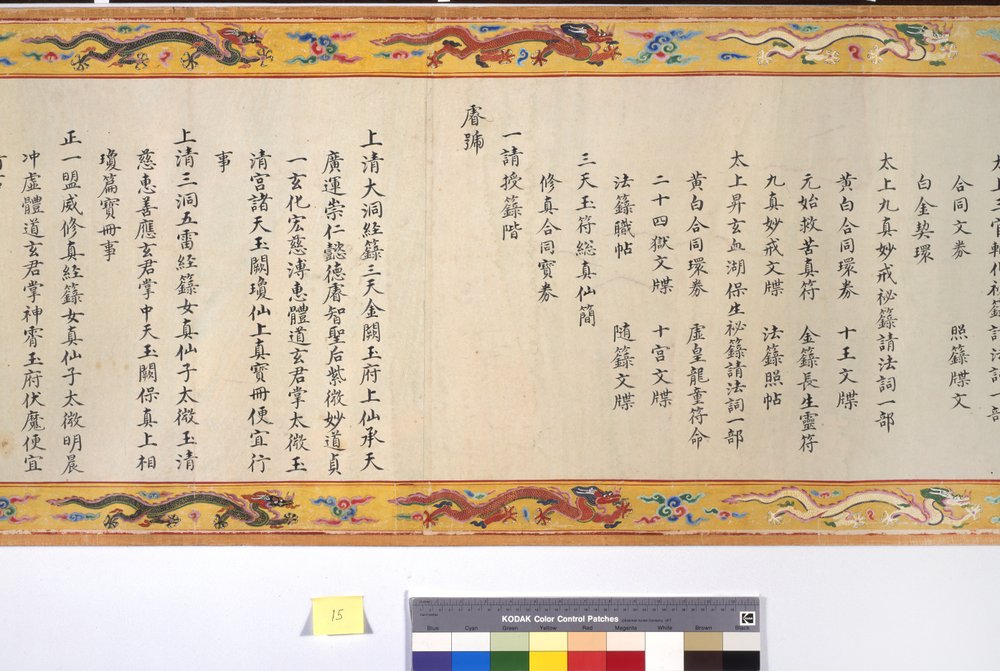 合同文券 照籙牒文
白金契環
太上九真妙戒祕籙請法詞一部
黃白合同環券 十王文牒
元始救苦真符 金籙長生靈符
九真妙戒文牒 法籙照帖
太上昇玄血湖保生祕籙請法詞一部
黃白合同環券 虛皇龍童符命
二十四獄文牒 十宮文牒
法籙職帖 隨籙文牒
三天玉符總真仙簡
修真合同寶券
一請授籙階
睿號
上清大洞経籙三天金闕玉府上仙承天
廣運崇仁懿德睿智聖后紫微妙道貞
一玄化宏慈溥惠體道玄君掌太微玉
清宮諸天玉闕瓊仙上真寶冊便宜行
事
上清三洞五雷経籙女真仙子太微玉清
慈惠善應玄君掌中天玉闕保真上相
瓊篇寶冊事
正一盟威修真経籙女真仙子太微明晨
冲虛體道玄君掌神霄玉府伏魔便宜
15
KODAK Color Control Patches
Blue Cyan Green Yellow Red Magenta White Brown Black